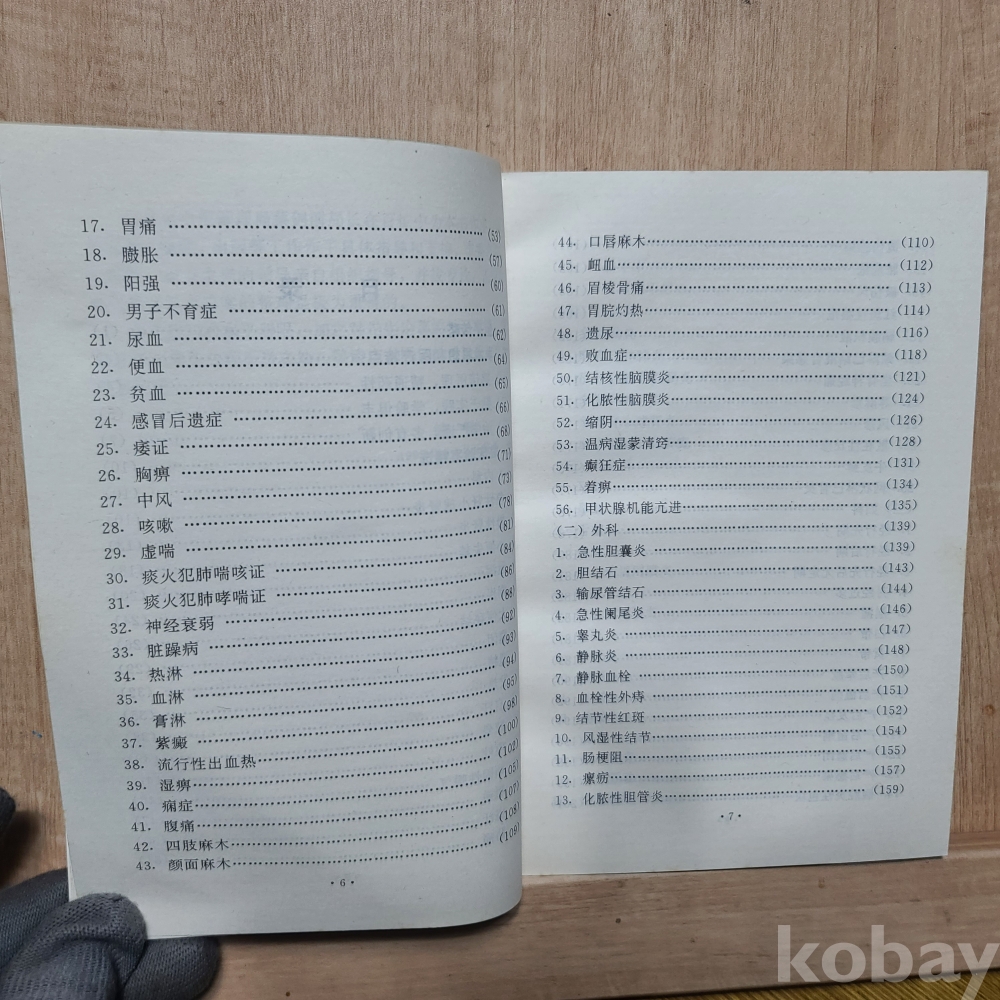 17. 胃痛 (53)
18. 臌胀 (57)
19. 阳强 (60)
20. 男子不育症 (61)
21. 尿血 (62)
22. 便血 (64)
23. 贫血 (65)
24. 感冒后遗症 (66)
25. 痿证 (68)
26. 胸痹 (71)
27. 中风 (73)
28. 咳嗽 (78)
29. 虚喘 (81)
30. 痰火犯肺喘咳证 (84)
31. 痰火犯肺哮喘证 (86)
32. 神经衰弱 (88)
33. 脏躁病 (92)
34. 热淋 (93)
35. 血淋 (94)
36. 膏淋 (95)
37. 紫癜 (98)
38. 流行性出血热 (100)
39. 湿痹 (102)
40. 痫症 (105)
41. 腹痛 (107)
42. 四肢麻木 (108)
43. 颜面麻木 (109)
·6·
44. 口唇麻木 (110)
45. 衄血 (112)
46. 眉棱骨痛 (113)
47. 胃脘灼热 (114)
48. 遗尿 (116)
49. 败血症 (118)
50. 结核性脑膜炎 (121)
51. 化脓性脑膜炎 (124)
52. 缩阴 (126)
53. 温病湿蒙清窍 (128)
54. 癫狂症 (131)
55. 着痹 (134)
56. 甲状腺机能亢进 (135)
(二) 外科 (139)
1. 急性胆囊炎 (139)
2. 胆结石 (143)
3. 输尿管结石 (144)
4. 急性阑尾炎 (146)
5. 睾丸炎 (147)
6. 静脉炎 (148)
7. 静脉血栓 (150)
8. 血栓性外痔 (151)
9. 结节性红斑 (152)
10. 风湿性结节 (154)
11. 肠梗阻 (155)
12. 瘰疬 (157)
13. 化脓性胆管炎 (159)
·7·
kobay